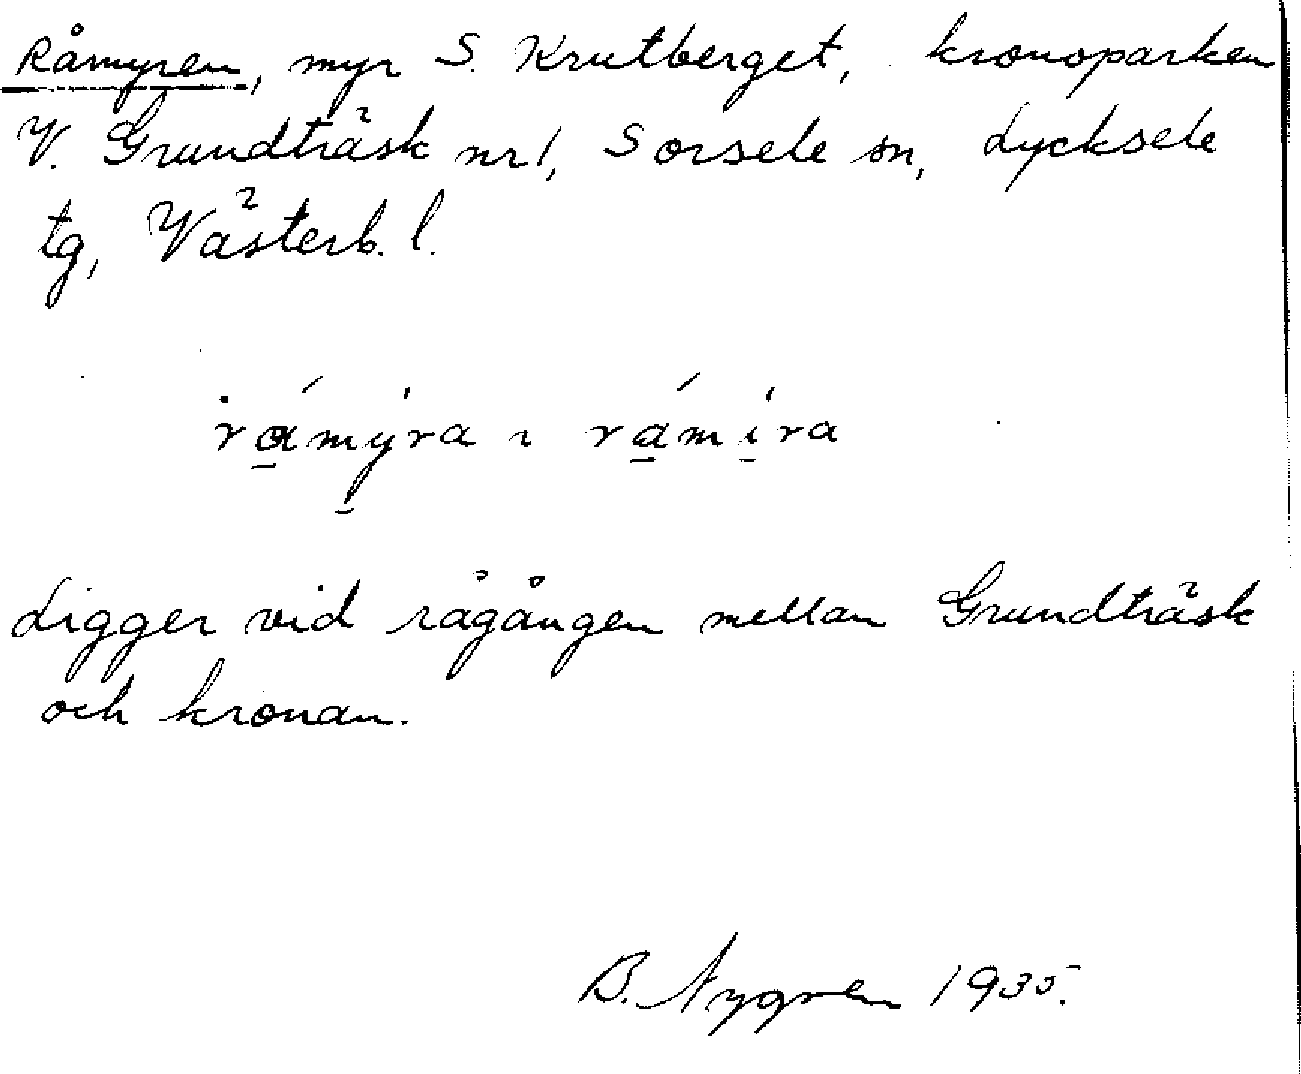 Råmyren, myr S. Krutberget, kronoparken
V. Grundträsk nr 1, Sorsele sn, Lycksele
tg, Västerb. l.
rámýra ɿ rámíra
Ligger vid rågången mellan Grundträsk
och kronan.
B. Nygren 1935.